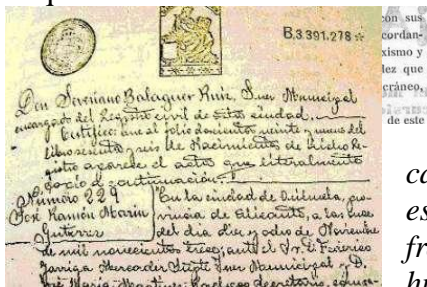 B,3391.278
Don Severiano Balaguer Ruiz, Juez Municipal
encargado del Registro civil de esta ciudad.
Certifico: que al folio doscientos veinte y nueve del
libro sesenta y seis de Nacimientos de dicho Re-
gistro aparece el acta que literalmente
copio á continuación.
Número 229
José Ramón Marín
Gutierrez
En la ciudad de Orihuela, pro-
vincia de Alicante, a las once
del dia diez y ocho de Noviembre
de mil novecientos trece; ante el Sr. D. Federico
Garriga Mercader Juez Municipal y D.
José María Secretario,
con sus
cordan-
xismo y
lez que
cráneo,
de este
ca
es
fr